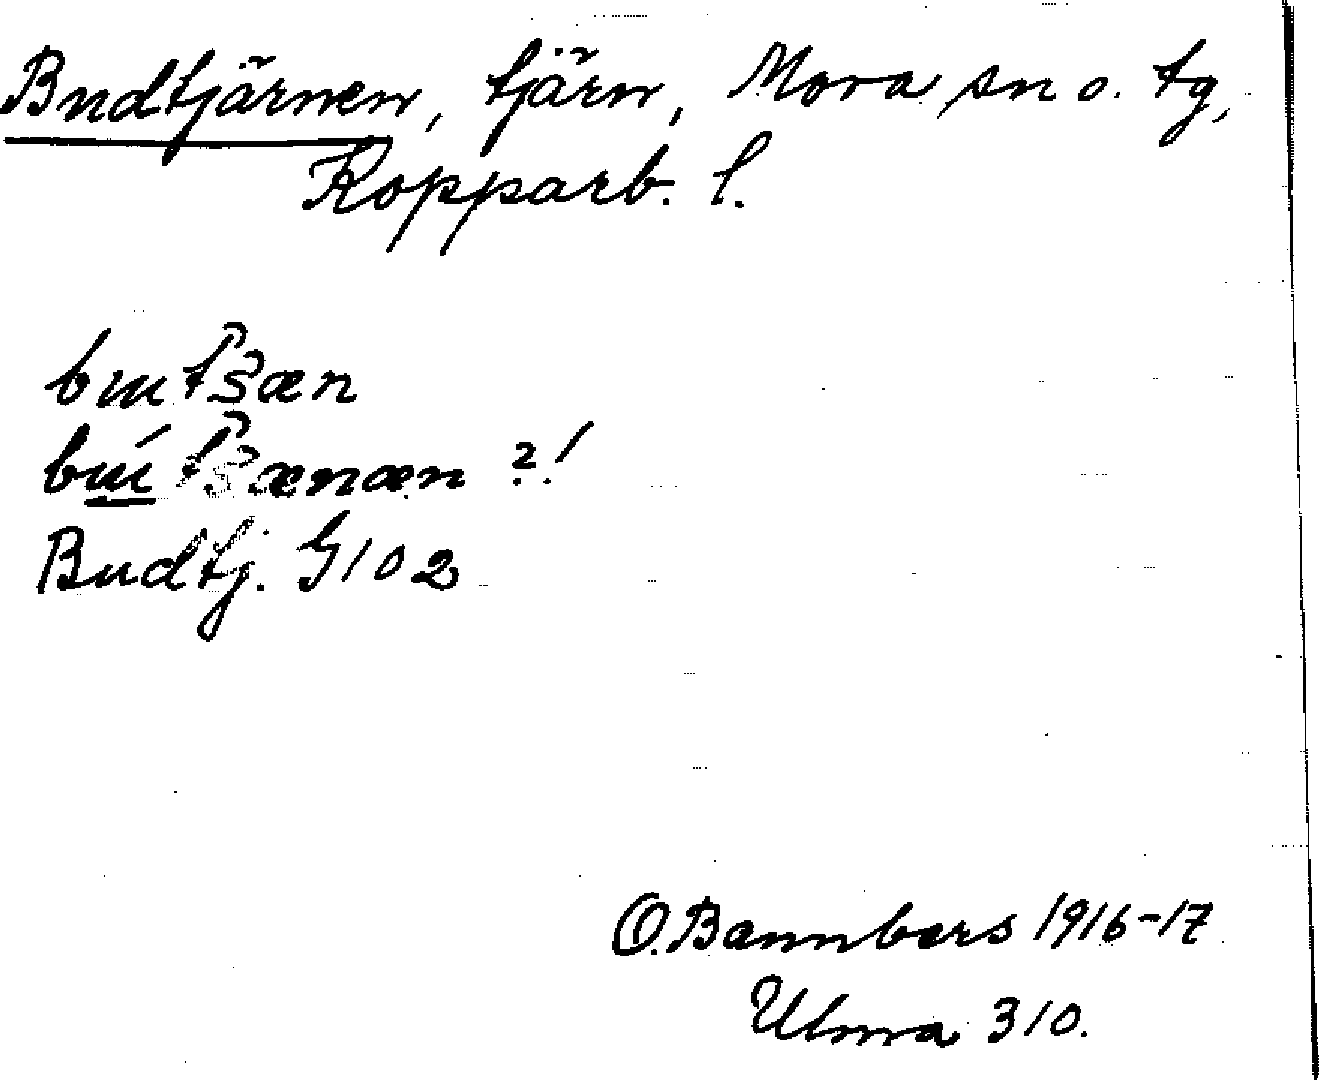 Budtjärnen, tjärn, Mora sn o. tg,
Kopparb. l.
?!
Budtj. G102
O. Bannbers 1916-17
Ulma 310.